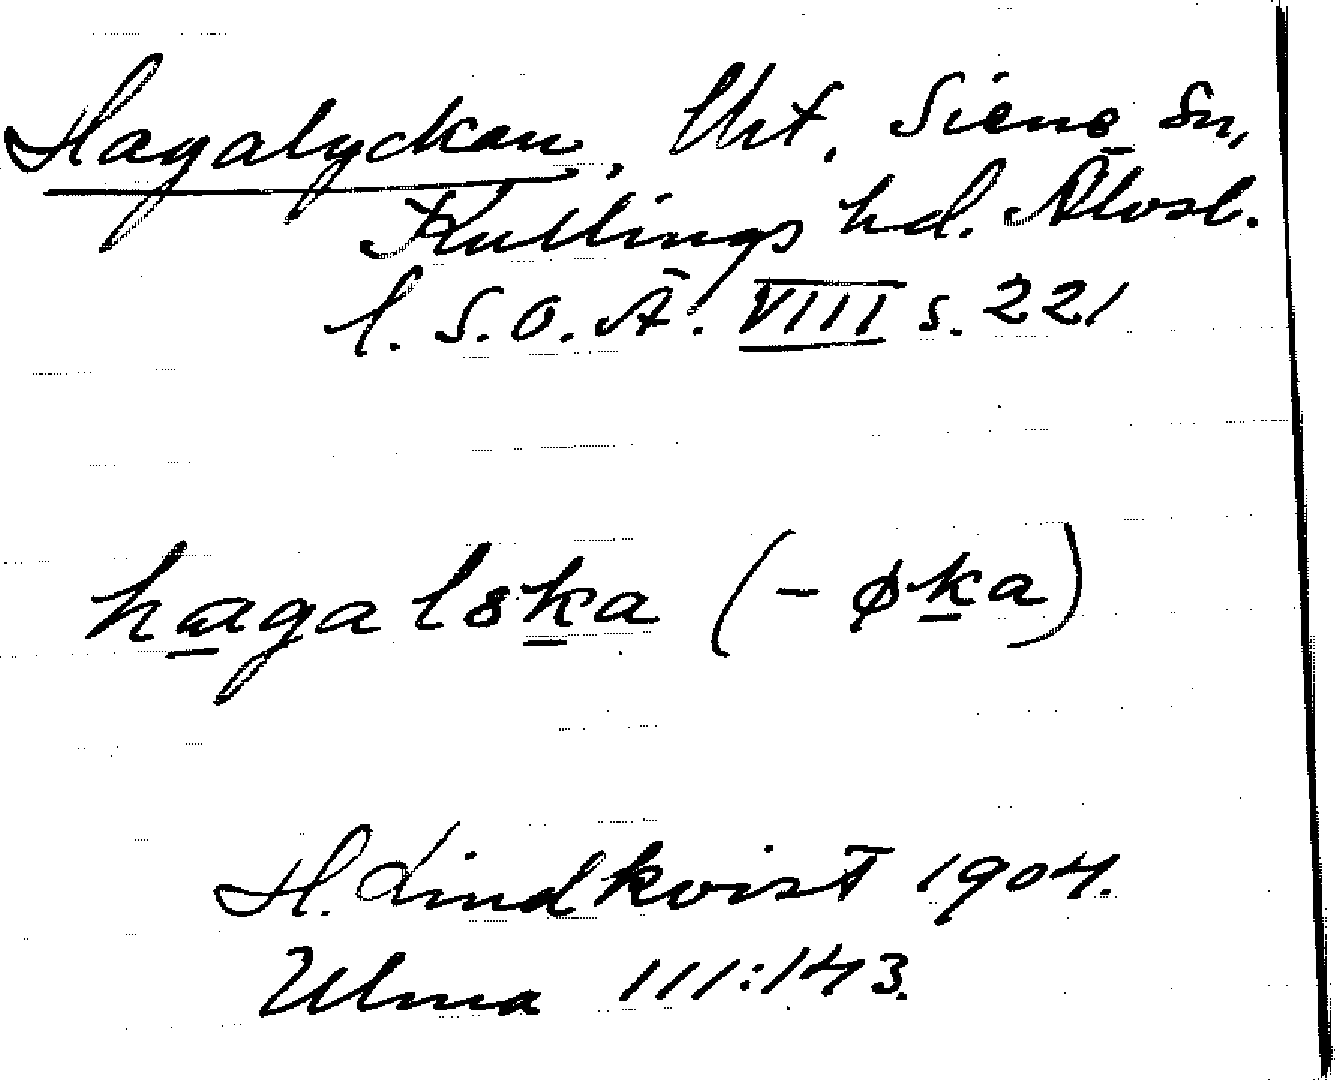 Hagalyckan, lht, Siene sn,
Kullings hd. Älvsb.
l. S.O.Ä. VIII s. 221
hagal8ka (-øka)
H. Lindkvist 1904.
Ulma 111:143.